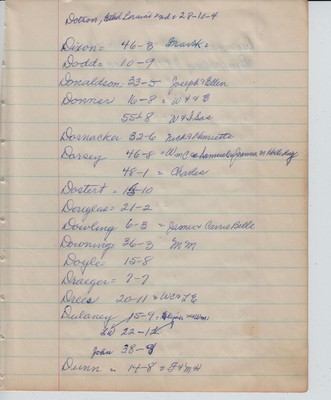 Dotson, Ethel Louise Rad = 28-10-4
Dixon = 46-8 Frank =
Dodd = 10-9
Donaldson 33-5 Joseph & Ellen
Donner 16-8 = W & B
55-8 W &
Dosnacker 32-6 Nick & Henrietta
Dorsey 46-8 = Wm C
48-1 = Charles
Dostert = 15-10
Douglas = 21-2
Dowling 6-3 = James & Carrie Belle
Downing 36-3 M M
Doyle 15-8
Draeger = 7-7
Drees 20-11 = WC & L E
Dulaney 15-9
22-12
John 38-8
Dunn = 14-8 = F & M H